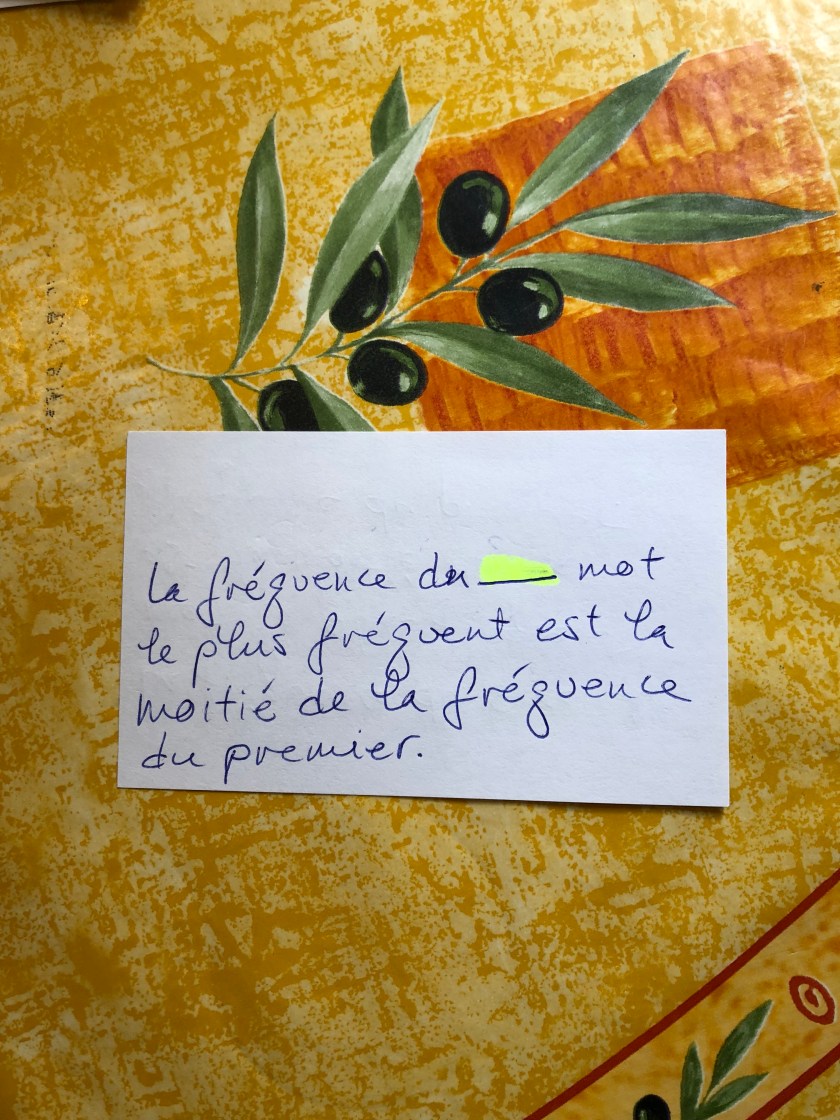 La fréquence du ____ mot
le plus fréquent est la
moitié de la fréquence
du premier.